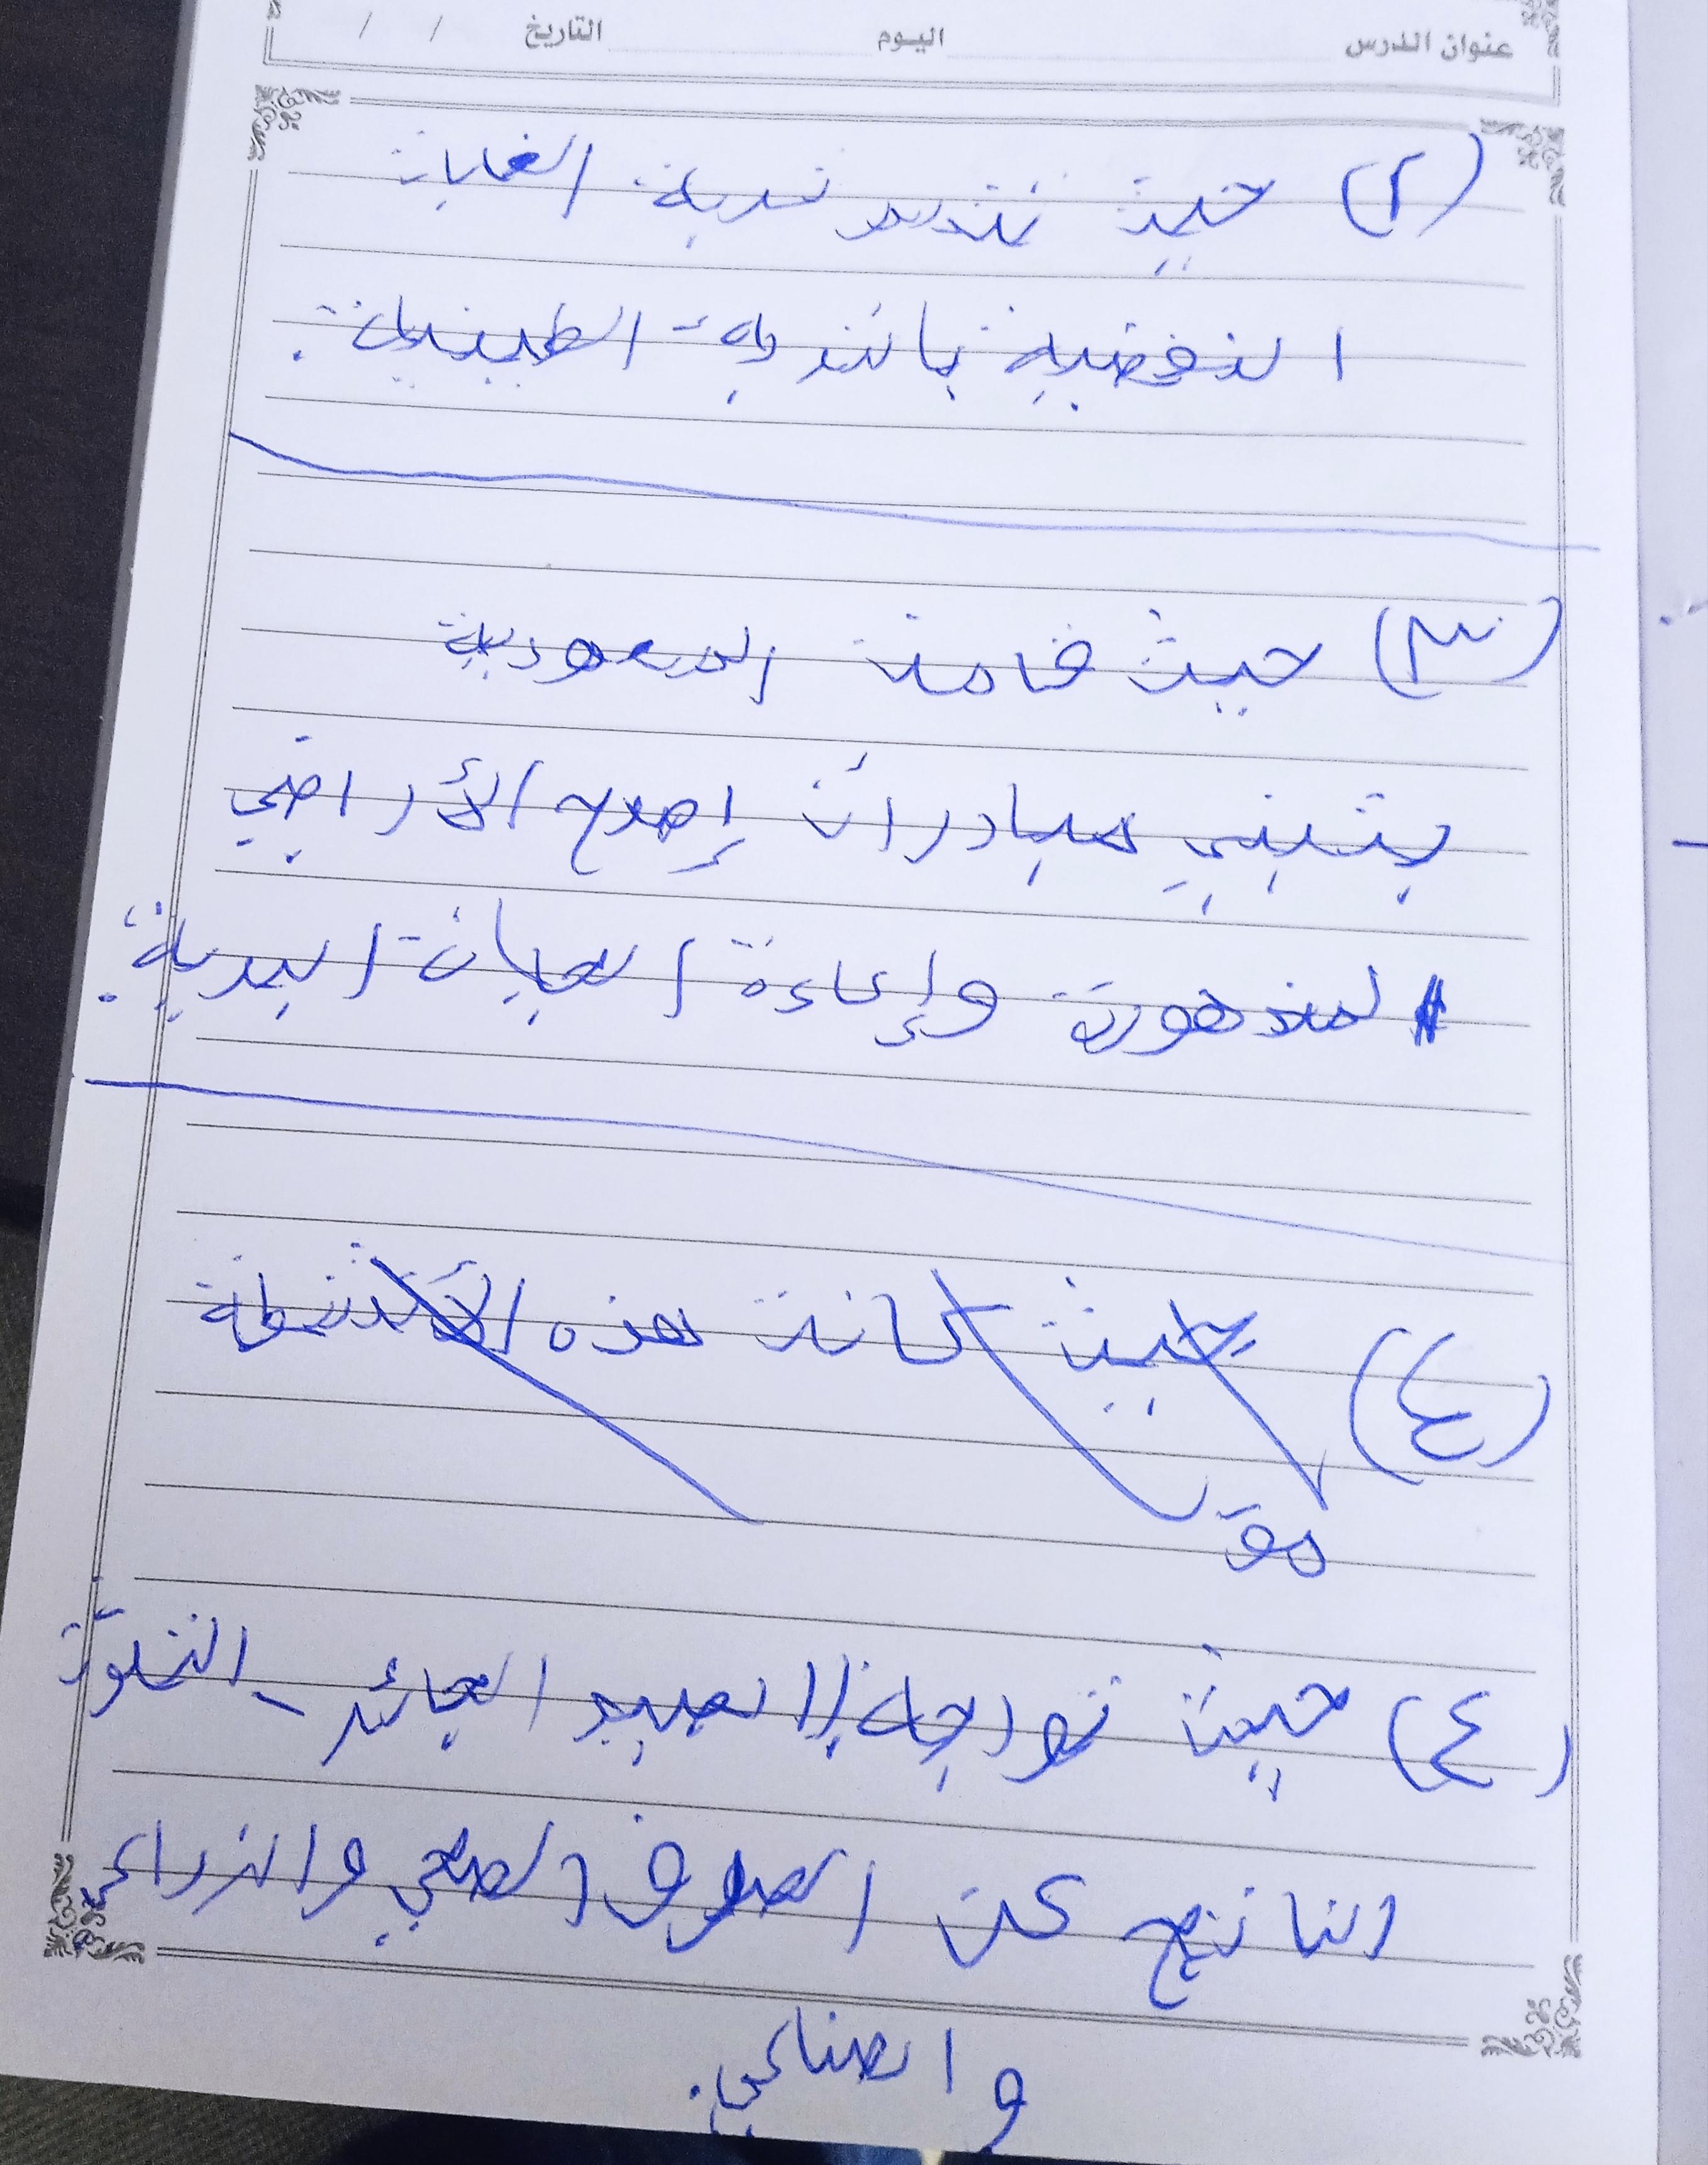 عنوان الدرس اليوم التاريخ / /
(٢) حيث تربة الغابات
النفضية بالطينية.
(٣) حيث قامت السعودية
بتبني مبادرات إصلاح الأراضي
لمتدهورة وإعادة الحياة البرية.
(٤) حيث كانت هذه الأنشطة
(٤) حيث تواجه الصيد الجائر - التلوث
الناتج عن الصرف الصحي والزراعي
والصناعي.